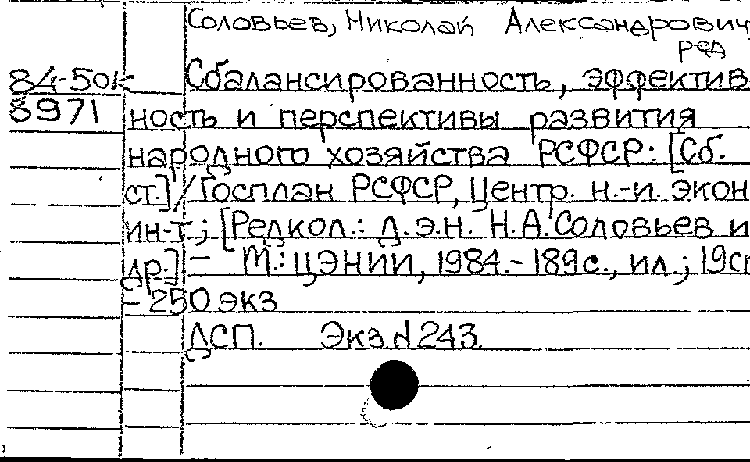 Соловьев, Николай Александрович
ред
84-50к Сбалансированность, эффектив
8971 ность и перспективы развития
народного хозяйства РСФСР: [Сб.
ст.] / Госплан РСФСР, Центр. н.-и. экон
ин-т.; [Редкол.: д.э.н. Н.А. Соловьев и
др.] – М.: ЦЭНИИ, 1984. – 189с., ил.; 19см
– 250 экз
ДСП. Экз. № 243.